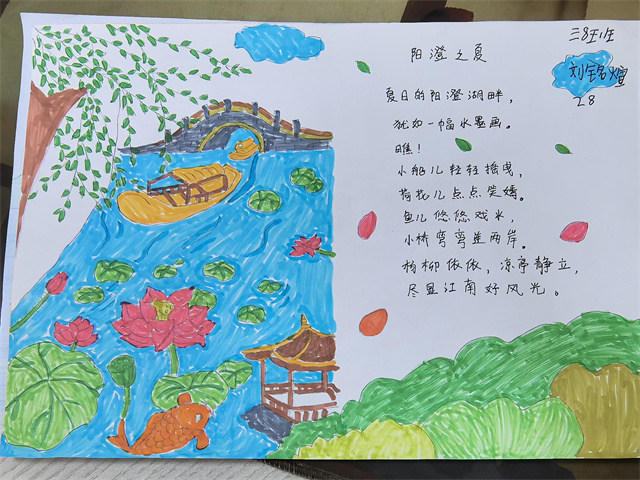 三8班
刘铭煊
28
阳澄之夏
夏日的阳澄湖畔，
犹如一幅水墨画。
瞧！
小船儿轻轻摇曳，
荷花儿点点笑嫣。
鱼儿悠悠戏水，
小桥弯弯连两岸。
杨柳依依，凉亭静立，
尽显江南好风光。